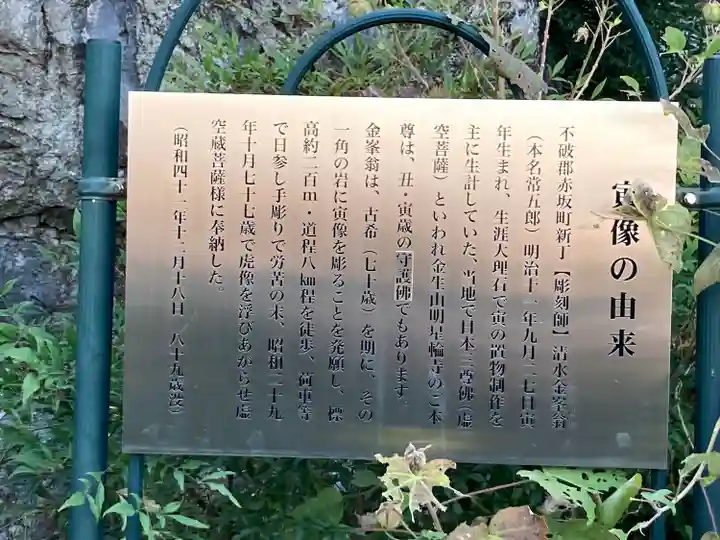 寅像の由来
不破郡赤坂町新丁【彫刻師】清水金峯翁
(本名常五郎)明治十一年九月二七日寅
年生まれ、生涯大理石で寅の置物制作を
主に生計していた、当地で日本三尊佛(虚
空菩薩)といわれ金生山明星輪寺のご本
尊は、丑・寅歳の守護佛でもあります。
金峯翁は、古希(七十歳)を期に、その
一角の岩に寅像を彫ることを発願し、標
高約二百m・道程八km程を徒歩、荷車等
で日参し手彫りで労苦の末、昭和二十九
年十月七十七歳で虎像を浮びあからせ虚
空蔵菩薩様に奉納した。
(昭和四十一年十二月十八日／八十九歳没)